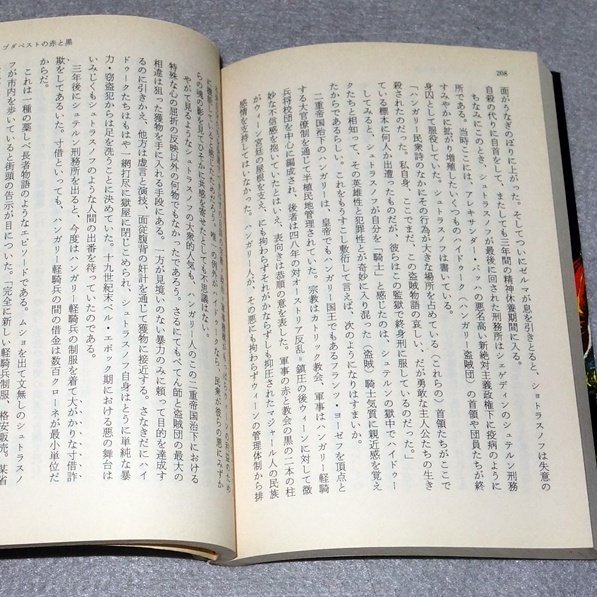 208
面がうなぎのぼりに上がった。そしてついにゼルマが息を引きとると、シュトラスノフは失意の
自殺の代りに自首をして、またしても三年間の精神休養期間に入る。
ちなみにこのとき、シュトラスノフが最後に回された刑務所はシェゲディンのシュテルン刑務
所である。当時ここには、アレキサンダー・バッハの悪名高い新絶対主義政権下に疫病のように
すみやかに拡がり増殖したいくつものハイドゥーク（ハンガリー盗賊団）の首領や団員たちが終
身囚として服役していた。シュトラスノフは書いている。
「ハンガリー民衆詩のなかにその行為が大きな場所を占めている（これらの）首領たちがここで
殺されたのだった。私自身、ここでまだ、この盗賊物語の哀しい、だが勇敢な主人公たちの生き
ている標本に何人か出遭ったものだが、彼らはこの監獄で終身刑に服しているのだった。」
してみると、シュトラスノフが自分を「騎士」と感じたのは、シュテルンの獄中でハイドゥー
クたちと相知って、その英雄性と犯罪性とが奇妙に入り混った（盗賊）騎士気質に親近感を覚え
たからであるらしい。これをもうすこし敷衍して言えば、次のようになりはすまいか。
二重帝国治下のハンガリーは、皇帝でもハンガリー国王でもあるフランツ・ヨーゼフを頂点と
する大官僚制を通じて半植民地管理されていた。宗教はカトリック教会、軍事はハンガリー軽騎
兵将校団を中心に編成され、後者は四八年の対オーストリア反乱＝鎮圧の後ウィーンに対して微
妙な不信感を抱いていたとはいえ、表向きは恭順の意を表した。軍事の赤と教会の黒の二本の柱
がウィーン宮廷の屋根を支え、にも拘わらずそれがかならずしも抑圧されたマジャール人の民族
感情を支持してはいなかった。ハンガリー人が、その悪にも拘わらずウィーンの管理体制から排
ブダペストの赤と黒
の魂の影を見てひそかに共感を寄せたとしても不思議はない。
やがて見るようなシュトラスノフの大衆的人気も、ハンガリー人のこの二重帝国治下における
特殊な心の屈折の反映以外の何物でもなかったであろう。さるにてもぺてん師と盗賊団の最大の
相違は狙った獲物を手に入れる手段にある。一方が見境いのない暴力のみに頼って目的を達成す
るのに引きかえ、他方は虚言と演技、面従腹背の奸計を通じて獲物に接近する。さなきだにハイ
ドゥークたちはもはや一網打尽に獄屋に閉じこめられ、シュトラスノフ自身はとうに単純な暴
力・窃盗犯からは足を洗うことに決めていた。十九世紀末ベル・エポック期における悪の舞台は
いみじくもシュトラスノフのような人間の出番を待っていたのである。
三年後にシュテルン刑務所を出ると、今度はハンガリー軽騎兵の制服を着て大がかりな寸借詐
欺をしてあるいた。寸借といっても、ハンガリー軽騎兵の間の借金は数百クローネが最小単位だ
からだ。
これは一種の藁しべ長者物語のようなエピソードである。ムショを出て文無しのシュトラスノ
フが市内を歩いていると街頭の告示が目についた。「完全に新しい軽騎兵制服、格安販売。某省